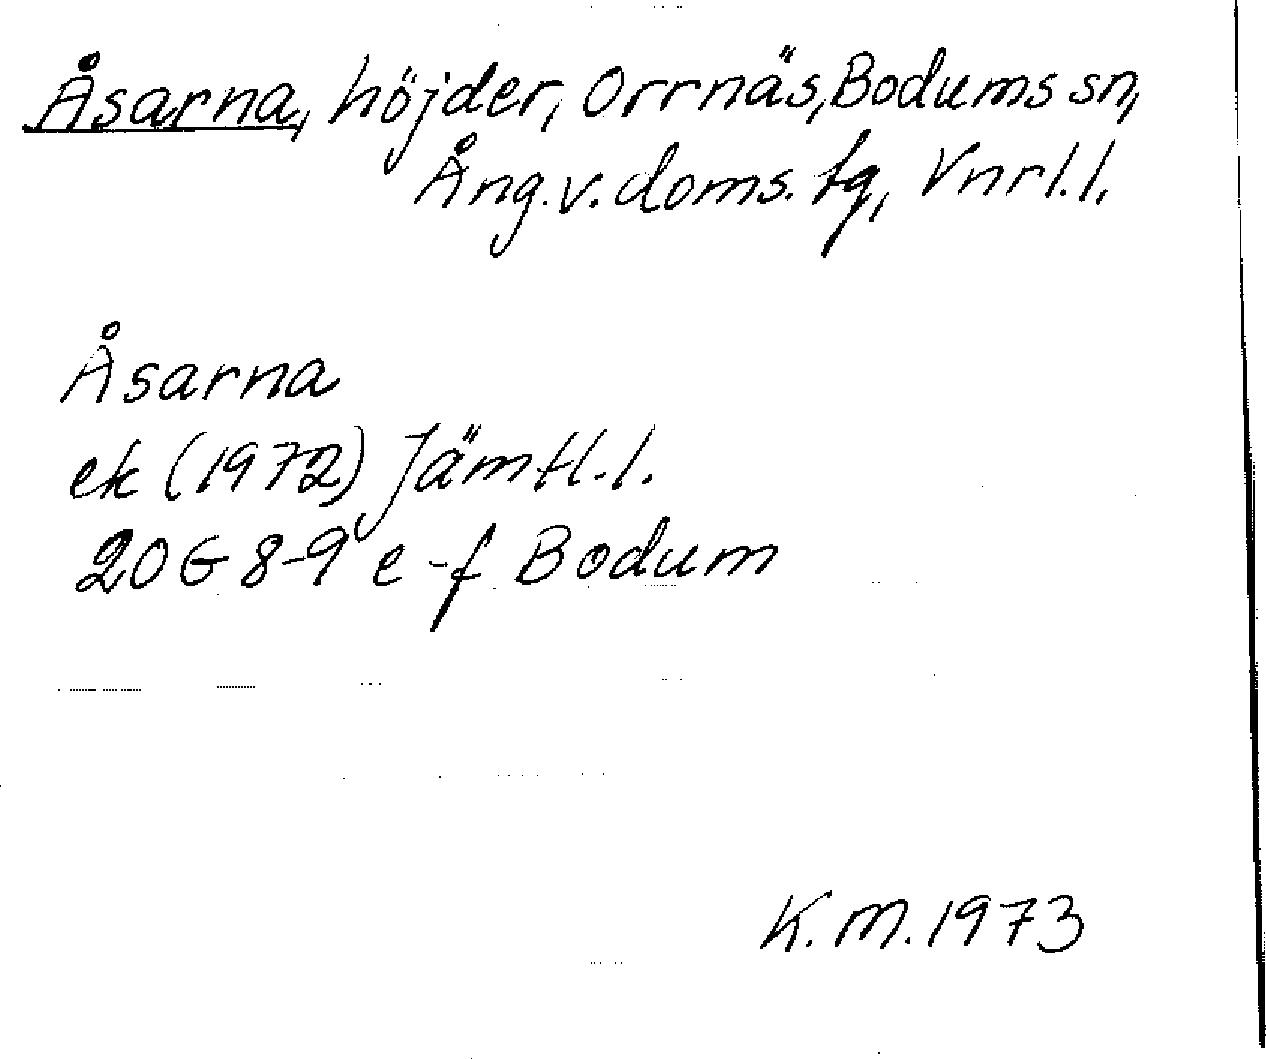 Åsarna, höjder, Orrnäs, Bodums sn,
Ång.v.doms.fg, Vnrl.l.
Åsarna
ek (1972) Jämtl.l.
20G 8-9 e-f Bodum
K.M.1973